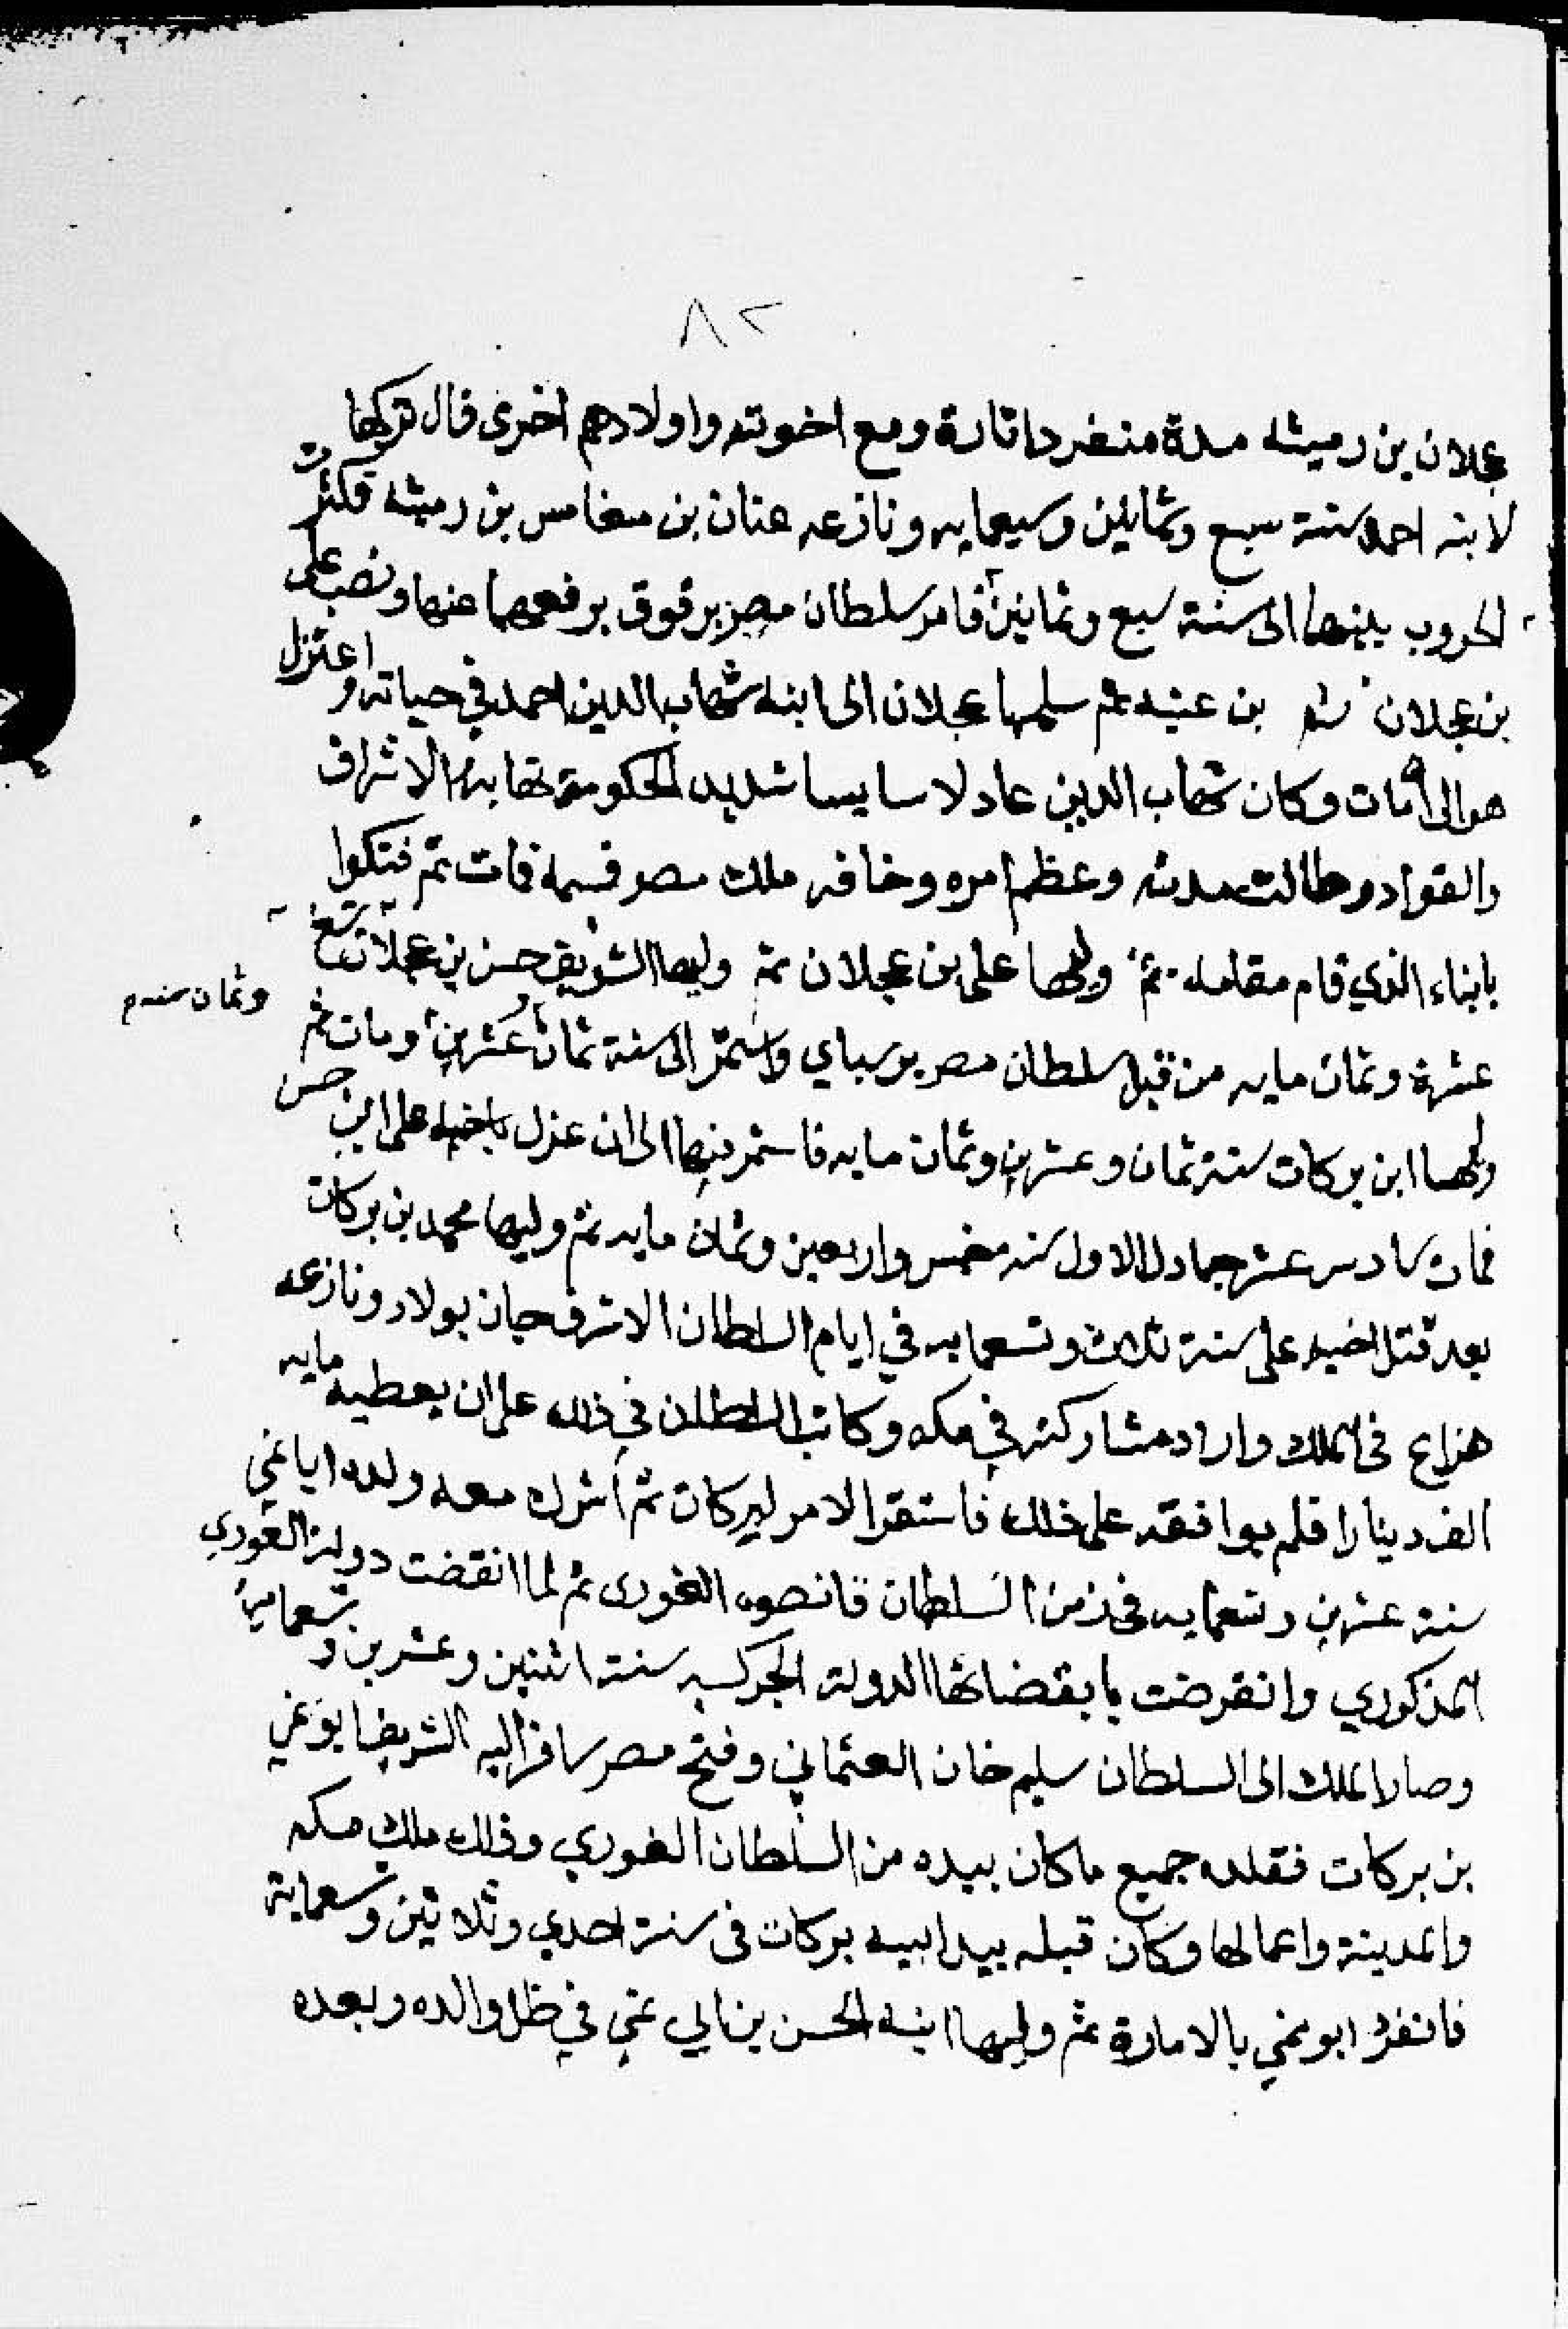 ٨٢
عجلان بن رميثه مدة منفردا تارة ومع اخوته واولادهم اخرى قال تركها
لابنه احمد سنة سبع وثمانين وسبعمايه ونازعه عنان بن مغامس بن رميثه فكثرت
الحروب بينهما الى سنة سبع وثمانين فامر سلطان مصر برقوق برفعهما عنها ونصب على
بن عجلان بن عنبه ثم سلمها عجلان الى ابنه شهاب الدين احمد في حياته واعتزل
هو الى مات وكان شهاب الدين عادلا سايسا شديد الحكومة تهابه الاشراف
والقواد وطالت مدته وعظم امره وخافه ملك مصر فسمه فمات ثم فتكوا
بابناء الذي قام مقامه ثم وليها على بن عجلان ثم وليها الشريف حسن بن عجلان تسع
عشرة وثمان مايه من قبل سلطان مصر برسباي واستمر الى سنة ثمان وعشرين ومات ثم
وثمان سنه م
وليها ابن بركات سنة ثمان وعشرين وثمان مايه فاستمر فيها الى ان عزل باخيه على ابن حسن
فمات سادس عشر جماد الاول سنه خمس واربعين وثمان مايه ثم وليها محمد بن بركات
بعد قتل اخيه على سنة ثلاث وتسعمايه في ايام السلطان الاشرف جان بولاد ونازعه
هزاع فى الملك واراد مشاركته في مكه وكاتب السلطان في ذلك على ان يعطيه مايه
الف دينارا فلم يوافقه على ذلك فاستقر الامر لبركات ثم اشرك معه ولده ابا نمي
سنة عشرين وتسعمايه فى زمن السلطان قانصوه الغورى ثم لما انقضت دولة الغوري
المذكوري وانقرضت بانقضائها الدولة الجركسيه سنة اثنين وعشرين وتسعمايه
وصار الملك الى السلطان سليم خان العثماني وفتح مصر سافر اليه الشريف ابو نمي
بن بركات فقلده جميع ماكان بيده من السلطان الغوري وذلك ملك مكه
والمدينة واعمالها وكان قبله بيد ابيه بركات فى سنة احدي وثلاثين وتسعماية
فانفرد ابو نمي بالامارة ثم وليها ابنه الحسن بن ابي نمي في ظل والده وبعده